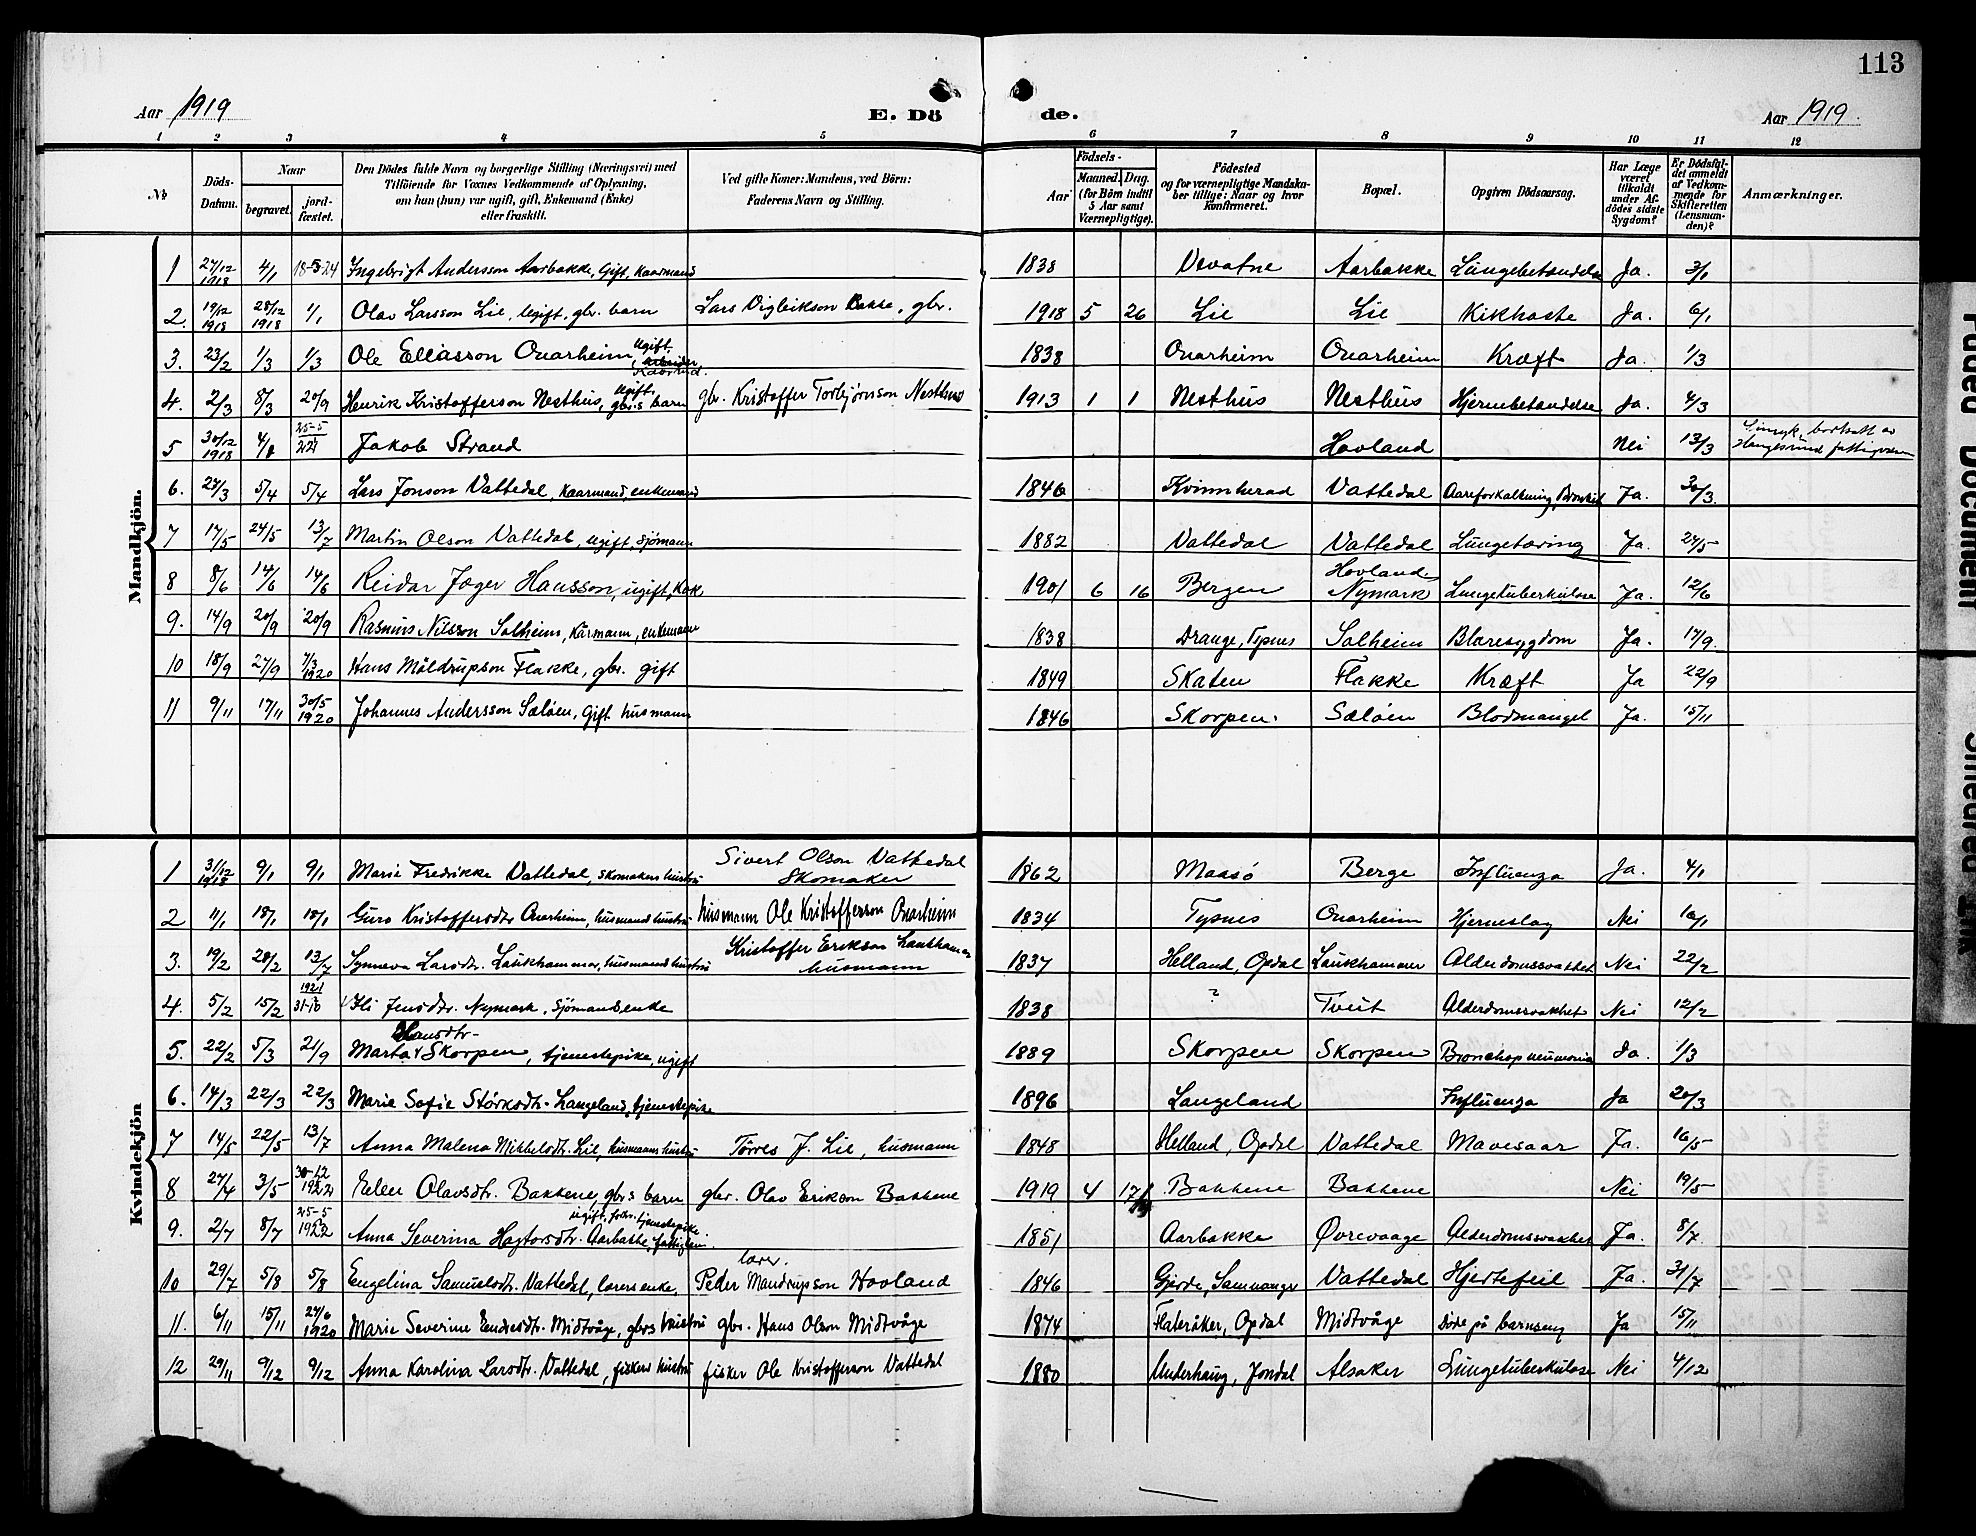 113
Aar 1919
E. Dö
de.
Aar 1919.
1 2 3 4 5 6 7 8 9 10 11 12
No
Döds-Datum.
Naar
begravet.
jord-fæstet.
Den Dödes fulde Navn og borgerlige Stilling (Næringsvei) med
Tilföiende for Voxnes Vedkommende af Oplysning,
om han (hun) var ugift, gift, Enkemand (Enke)
eller fraskilt.
Ved gifte Koner: Mandens, ved Börn:
Faderens Navn og Stilling.
Födsels-
Aar
Maaned. Dag.
(for Börn indtil
5 Aar samt
Værnepligtige).
Födested
og for værnepligtige Mandska-
ber tillige: Naar og hvor
konfirmeret.
Bopæl.
Opgiven Dödsaarsag.
Har Læge
været
tilkaldt
under Af-
dödes sidste
Sygdom?
Er Dödsfal-
det anmeldt
af Vedkom-
mende for
Skifteretten
(Lensman-
den)?
Anmærkninger.
Mandkjön.
1 27/12 1918 4/1 18-5-24 Ingebrigt Andersson Aarbakke, Gift, Kaarmand 1838 Aarbakke Lungebetændelse Ja. 3/1
2. 19/12 1918 28/12 1918 1/1 Olav Larsson Lie, ugift, gbr. barn Lars Vigleikson Bakke, gbr. 1918 5 26 Lie Lie Kikhoste Ja. 6/1
3. 23/2 1/3 1/3 Ole Eliasson Onarheim, ugift 1838 Onarheim Onarheim Kræft Ja. 1/3
4. 2/3 8/3 20/9 Henrik Kristofferson Nesthus, ugift, gbr.s barn gbr. Kristoffer Torbjørnson Nesthus 1913 1 1 Nesthus Nesthus Hjernebetændelse Ja. 4/3
5 30/12 1918 Jakob Strand Hovland Nei 13/3
6. 27/3 5/4 5/4 Lars Jonson Vattedal, Kaarmand, enkemand 1846 Kvinnherad Vattedal Aareforkalkning, Bronkit Ja. 30/3
7 17/5 24/5 13/7 Martin Olson Vattedal, ugift, sjømann 1882 Vattedal Vattedal Lungetæring Ja. 27/5
8 8/6 14/6 14/6 Reidar Jæger Hansson, ugift, Kok 1901 6 16 Bergen Hovland Nymark Lungetuberkulose Ja. 12/6
9. 14/9 20/9 20/9 Rasmus Nilsson Solheim, Kårmann, enkemann 1838 Drange, Tysnes Solheim Blæresygdom Ja. 17/9.
10 18/9 27/9 7/3 1920 Hans Moldrupson Flakke, gbr. gift 1849 Skaten Flakke Kræft Ja 22/9
11 9/11 17/11 30/5 1920 Johannes Andersson Sæløen, Gift husmann 1846 Skorpen. Sæløen Blodmangel Ja. 15/11
Kvindekjön
1 31/12 1918 9/1 9/1 Marie Fredrikke Vattedal, skomakers hustru Sivert Olson Vattedal Skomaker 1862 Maasø Berge Influenza Ja. 4/1
2 11/1 18/1 18/1 Guro Kristoffersdtr Onarheim, husmands hustru husmann Ole Kristofferson Onarheim 1834 Tysnes Onarheim Hjerneslag Nei 10/1
3. 19/2 28/2 13/7 Synneva Larsdtr. Laukhammer, husmands hustru Kristoffer Erikson Laukhammer husmann 1837 Helland, Opdal Laukhammer Alderdomssvakhet Nei 22/2
4. 5/2 15/2 1921 31-10 Jensdtr. Nymark, Sjømandsenke 1838 ? Tveit Alderdomssvakhet Nei 12/2
5. 22/2 5/3 21/9 Marta Hansdtr. Skorpen, tjenestepike, ugift 1889 Skorpen Skorpen Bronchopneumonia Ja. 1/3
6. 14/3 22/3 22/3 Marie Sofie Størksdtr. Langeland, tjenestepike 1896 Langeland Influenza Ja 20/3
7 14/5 22/5 13/7 Anna Malena Mikkelsdtr. Lie, husmanns hustru Tørres J. Lie, husmann 1848 Helland, Opdal Vattedal Mavesaar Ja. 16/5
8 27/4 3/5 30-12 1922 Olavsdtr. Bakkene, gbr.s barn gbr. Olav Erikson Bakkene 1919 4 17 Bakkene Bakkene Nei 19/5
9. 2/7 8/7 25-5 1922 Anna Severina Aarbakke, ugift, tjenestepike 1851 Aarbakke Øvrevaage Alderdomssvakhet Ja. 8/7
10 29/7 5/8 5/8 Engelina Samuelsdtr. Vattedal, lærersenke, lærer. Peder Mandrupson Hovland 1846 Gjerde, Samnanger Vattedal Hjertefeil Ja. 31/7
11. 6/11 15/11 27/6 1920 Marie Severine Endresdtr. Midtvåge, gbrs hustru gbr. Hans Olson Midtvåge 1874 Flateråker, Opdal Midtvåge Døde på barnseng Ja 15/11
12 29/11 9/12 9/12 Anna Karolina Larsdtr. Vattedal, fiskers hustru fisker Ole Kristofferson Vattedal 1880 Underhaug, Jondal Alsaker Lungetuberkulose Nei 4/12
Faded Document
Smeared Ink